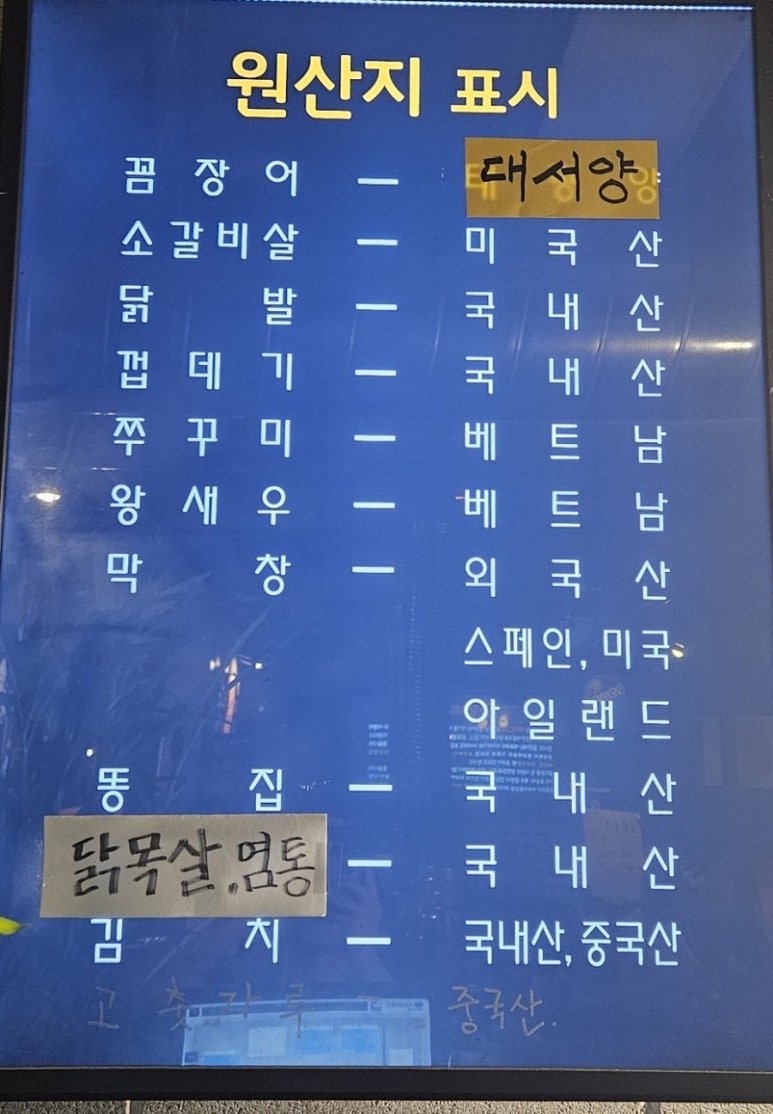 원산지 표시
꼼장어 — 대서양
소갈비살 — 미국산
닭발 — 국내산
껍데기 — 국내산
쭈꾸미 — 베트남
왕새우 — 베트남
막창 — 외국산
스페인, 미국
아일랜드
똥집 — 국내산
닭목살, 염통 — 국내산
김치 — 국내산, 중국산
고춧가루 — 중국산.